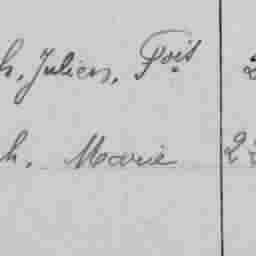 h, Julien, Fois 2
h, Marie 22